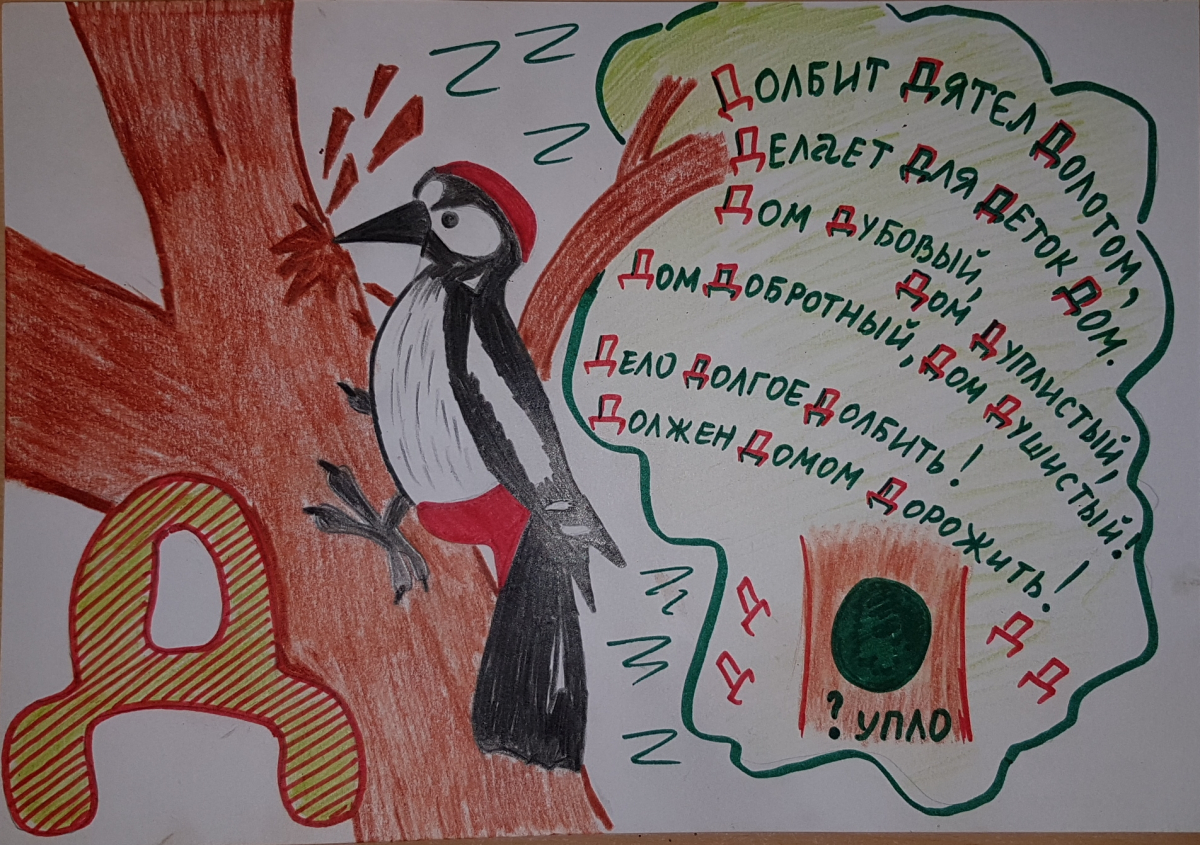 Долбит Дятел Долотом,
Делает Для Деток Дом.
Дом Дубовый, Дом Дуплистый,
Дом Добротный, Дом Душистый!
Дело Долгое Долбить!
Должен Домом Дорожить!
Д
Д
Д
Д
? упло
Д